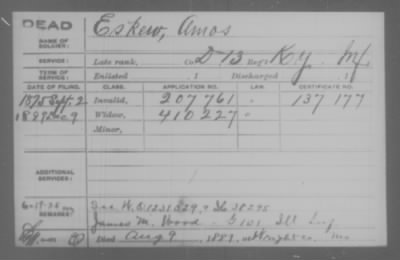 DEAD
NAME OF SOLDIER: Eskew, Amos
SERVICE: Late rank, Co. D 13 Reg't Ky. Inf.
TERM OF SERVICE: Enlisted , 1 Discharged , 1
DATE OF FILING. CLASS. APPLICATION NO. LAW. CERTIFICATE NO.
1875 Sept 2 Invalid, 207 761 " 137 177
1889 Dec 9 Widow, 410 227 "
Minor,
ADDITIONAL SERVICES:
REMARKS: See W.O. 1231529,
James M. Wood - G 101 Ill Inf.
Died Aug 9, 1889, at Wright co. Mo